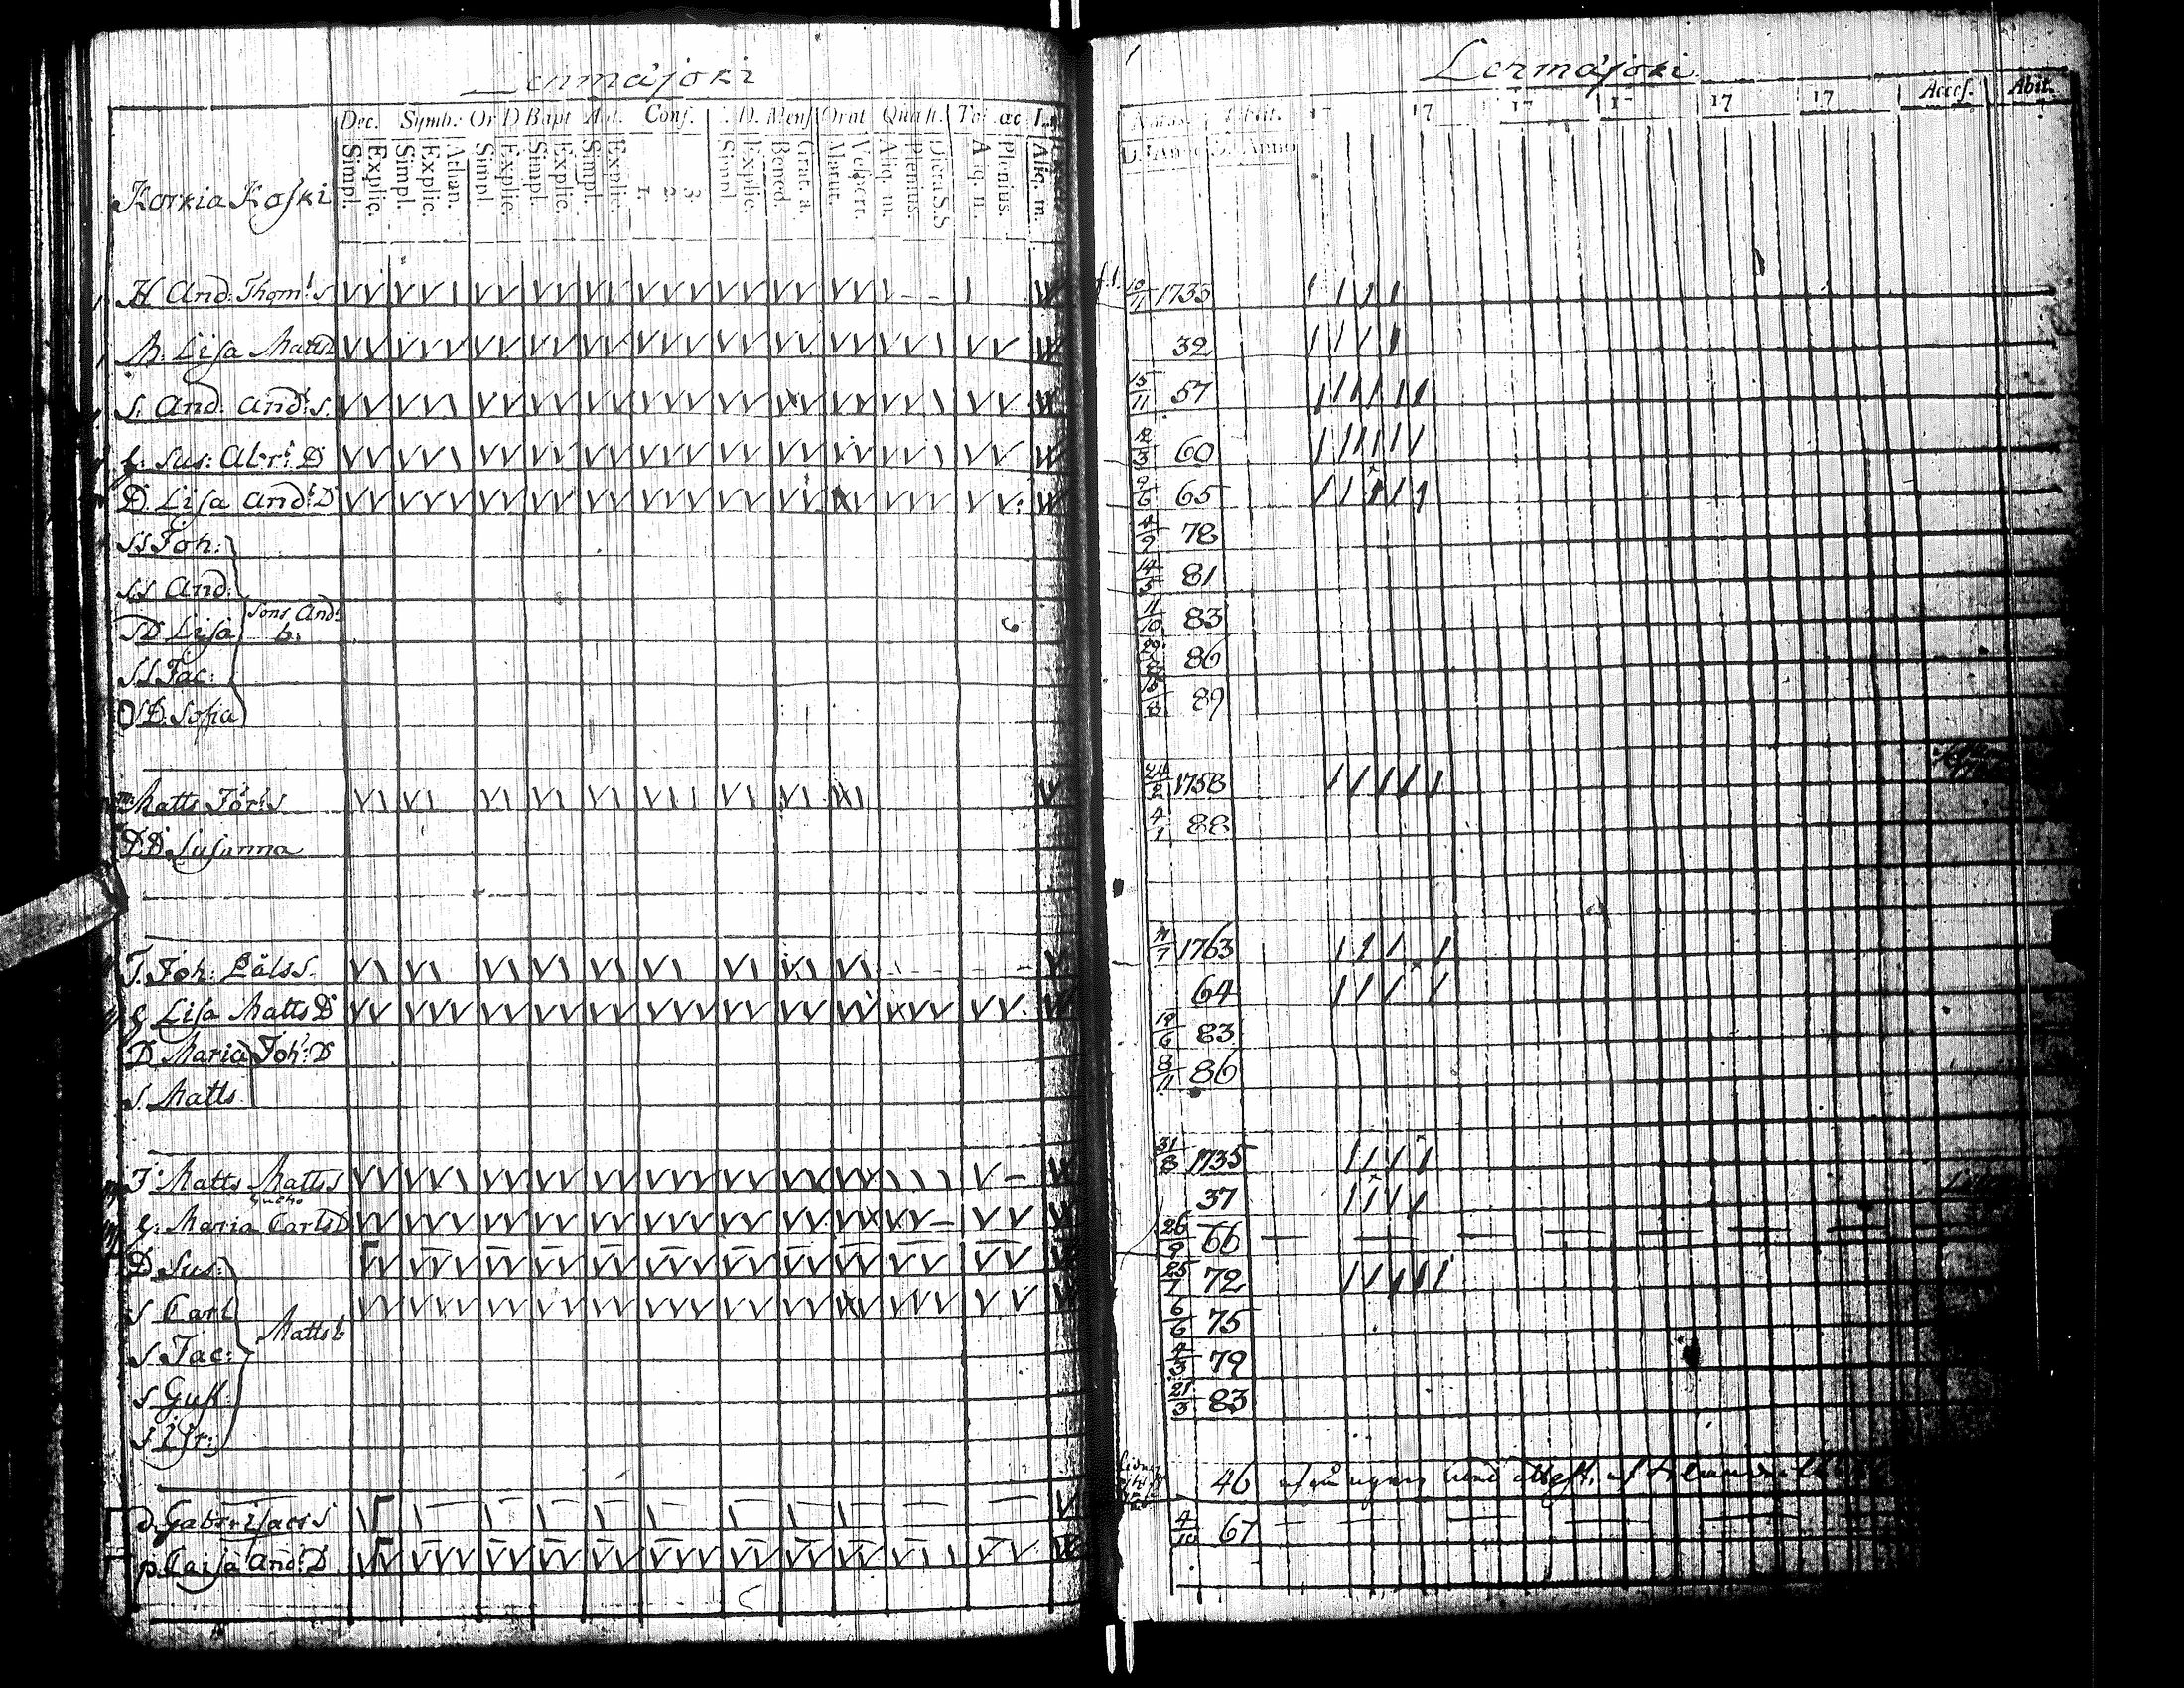 Lenmäjoki
Dec. Symb. Or D Bapt Abs. Conf. C. D. Mens Orat Quæst. Tab. æc
Simpl. Explic. Simpl. Explic. Athan. Simpl. Explic. Simpl. Explic. Simpl. Explic. 1. 2. 3. Simpl. Explic. Bened. Grat. a. Matut. Vespert. Aliq. m. Plenius. Dicta S.S. Aliq. m. Plenius. Aliq. m.
Korkia Koski
H And: Thom: S
M. Lisa Matts D
S. And: And: S.
h. Sus: Abr: D
D. Lisa And: D
SS Joh:
SS And:
SD Lisa
Sons And: b:
SS Jac:
SD. Sofia
Matts Jör: S
D D Susanna
J. Joh: Påls S.
h Lisa Matts D
D Maria Joh: D
S. Matts
J Matts Matts S
h. Maria Carls D
D Sus:
S Carl
Matts b
S. Jac:
S Gust:
S Isr:
d. Gabr: Isacs S
p. Caisa And: D
Lenmäjoki
Natus. Obiit. 17 17 17 17 17 17 Access. Abit.
D. Anno D. Anno
10/11 1733
32
15/11 57
12/3 60
2/6 65
4/9 78
14/5 81
11/10 83
86
89
24/2 1758
4/1 88
11/7 1763
64
19/6 83
8/11 86
31/8 1735
37
26/9 66
25/7 72
6/6 75
4/3 79
21/3 83
46
4/10 67